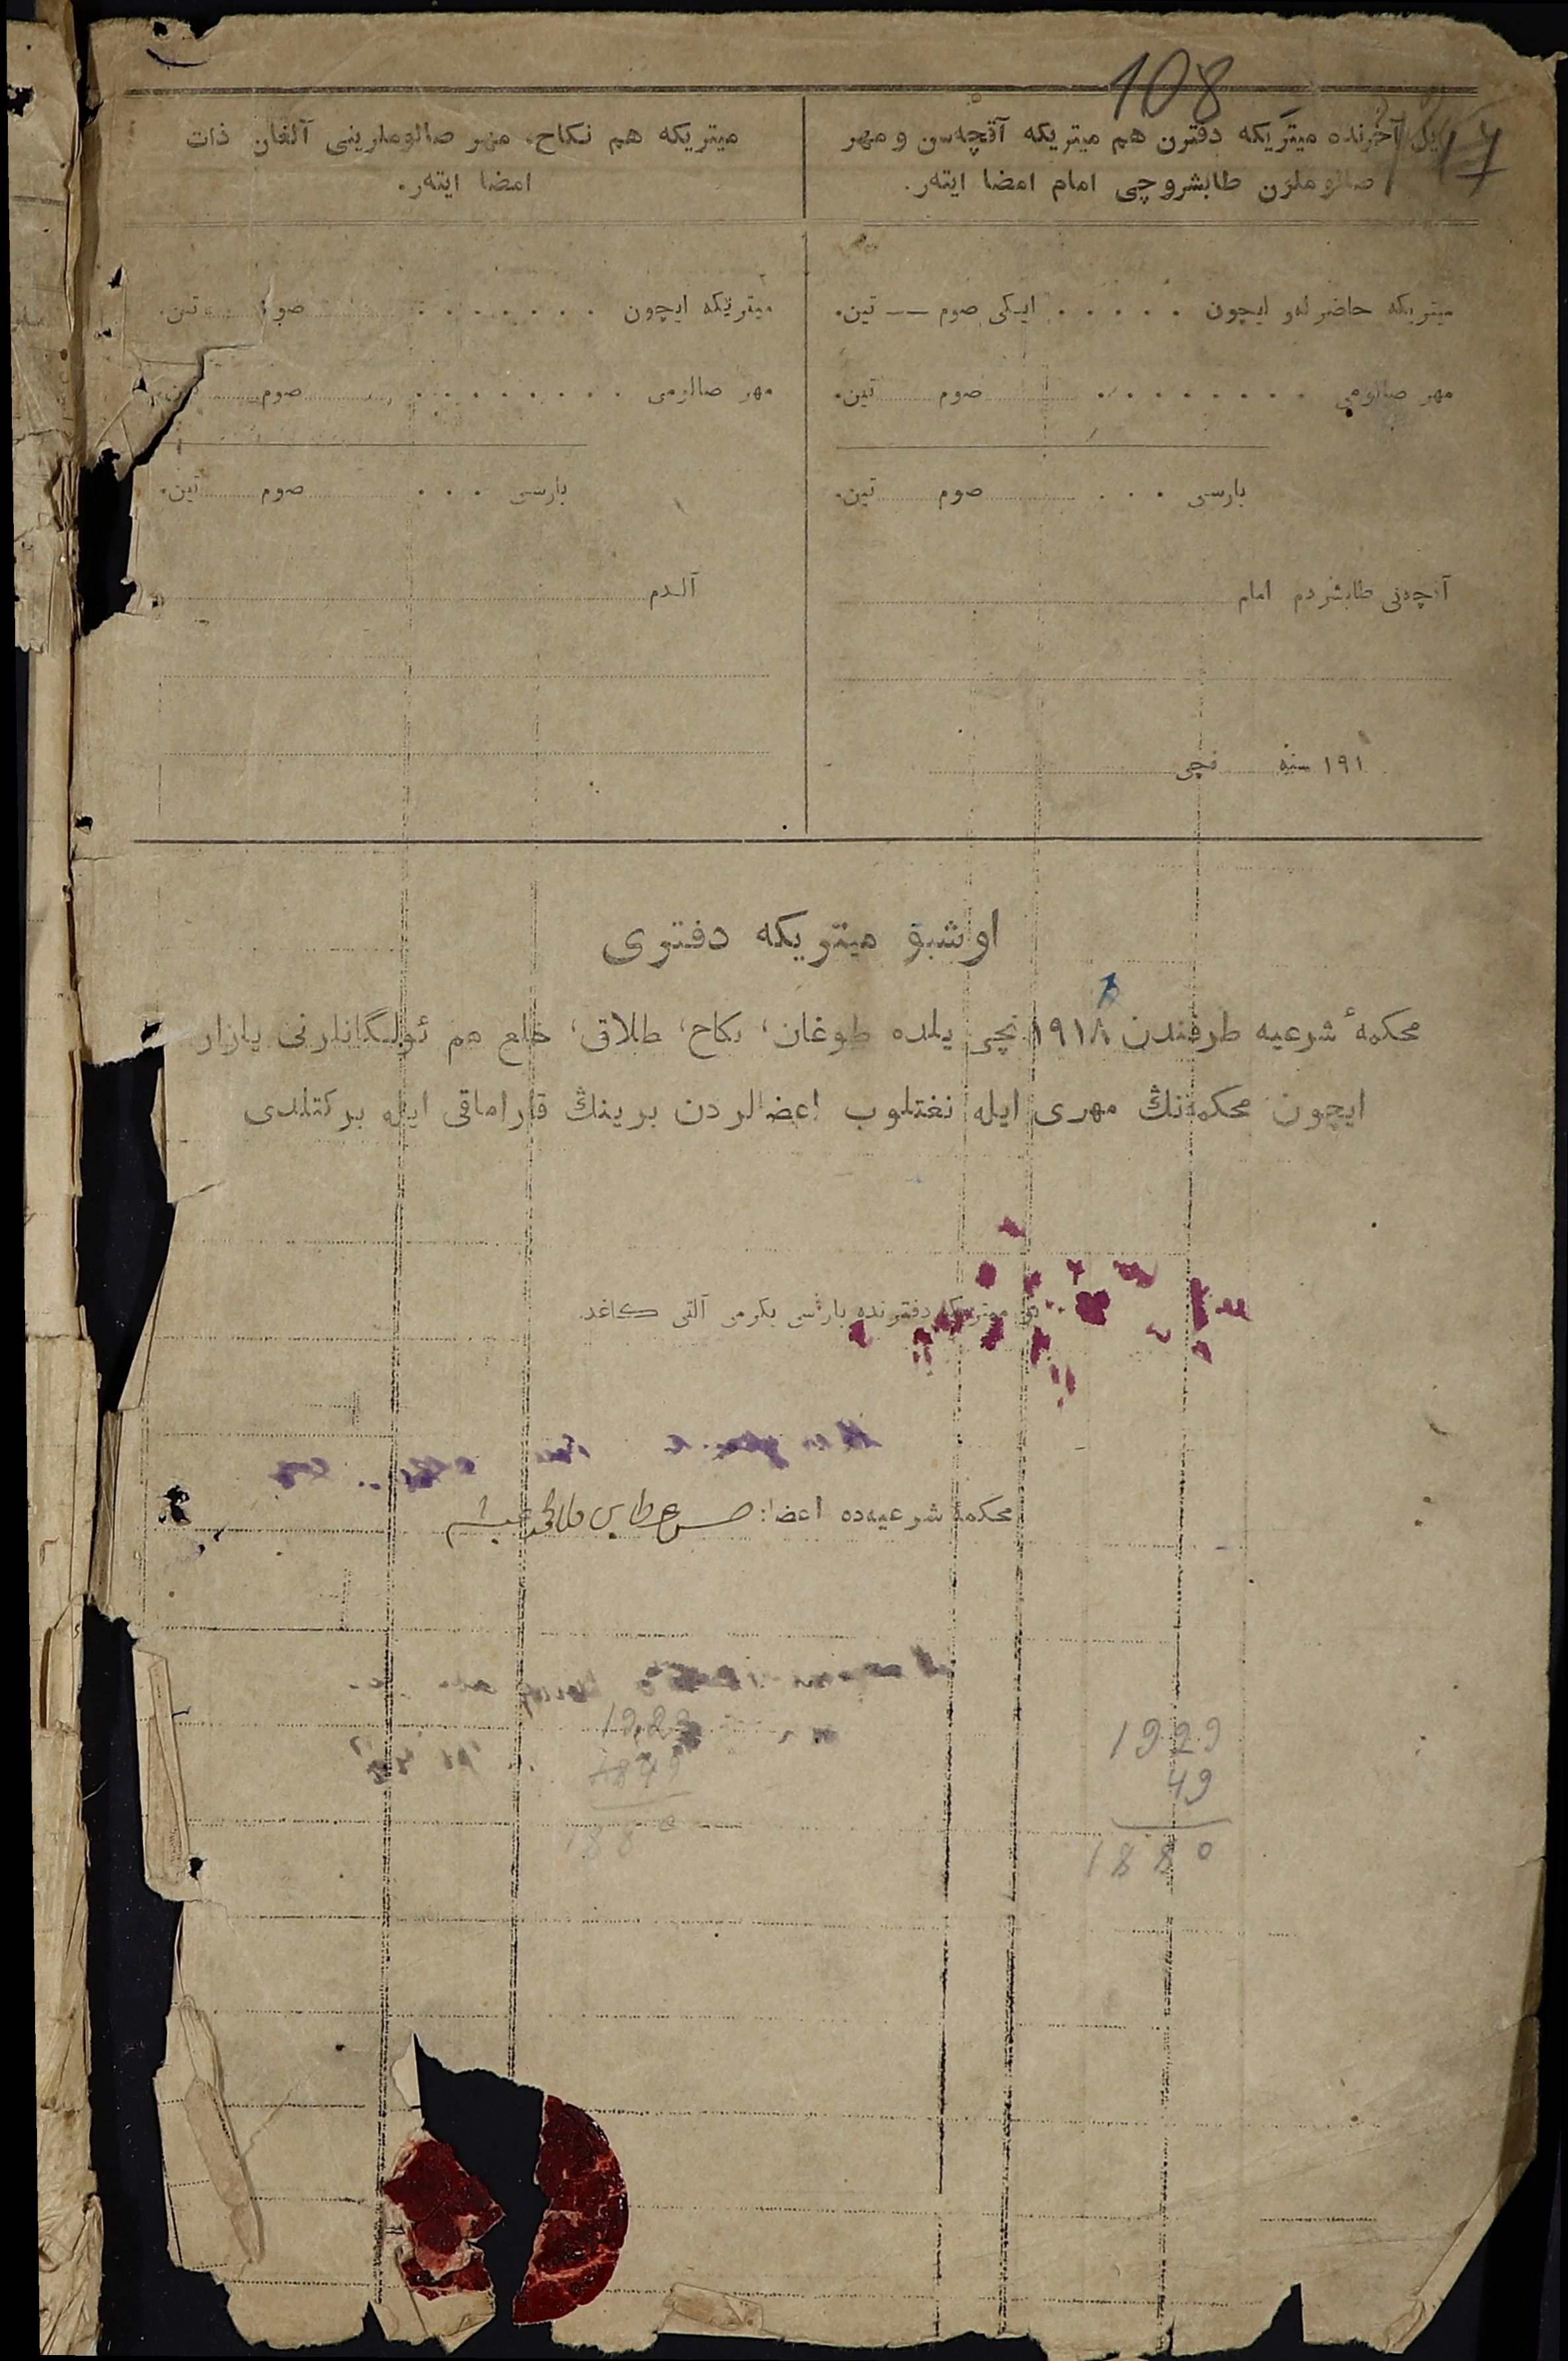 108
یل آخرنده میتریکه دفترن هم میتریکه آقچه‌سن و مهر
صالوملرن طابشروچی امام امضا ایته‌ر.
میتریکه هم نکاح، مهر صالوملرینی آلغان ذات
امضا ایته‌ر.
میتریکه حاضرله‌و ایچون . . . . . ایکی صوم — تین.
مهر صالومی . . . . . . . . صوم تین.
بارسی . . . صوم تین.
آقچه‌نی طابشردم امام
١٩١ سنه نچی
میتریکه ایچون . . . . . . . صوم تین.
مهر صالومی . . . . . . . . صوم تین.
بارسی . . . صوم تین.
آلدم
اوشبو میتریکه دفتری
محکمهٔ شرعیه طرفندن ١٩١٨ نچی یلده طوغان، نکاح، طلاق، خلع هم ئولگانلرنی یازار
ایچون محکمه‌نڭ مهری ایله نغتلوب اعضالردن برینڭ قاراماقی ایله برکتلدی
بو میتریکه دفترنده بارسی یکرمی آلتی کاغد.
محکمهٔ شرعیه‌ده اعضا:
1929
49
1880
1929
1849
1880